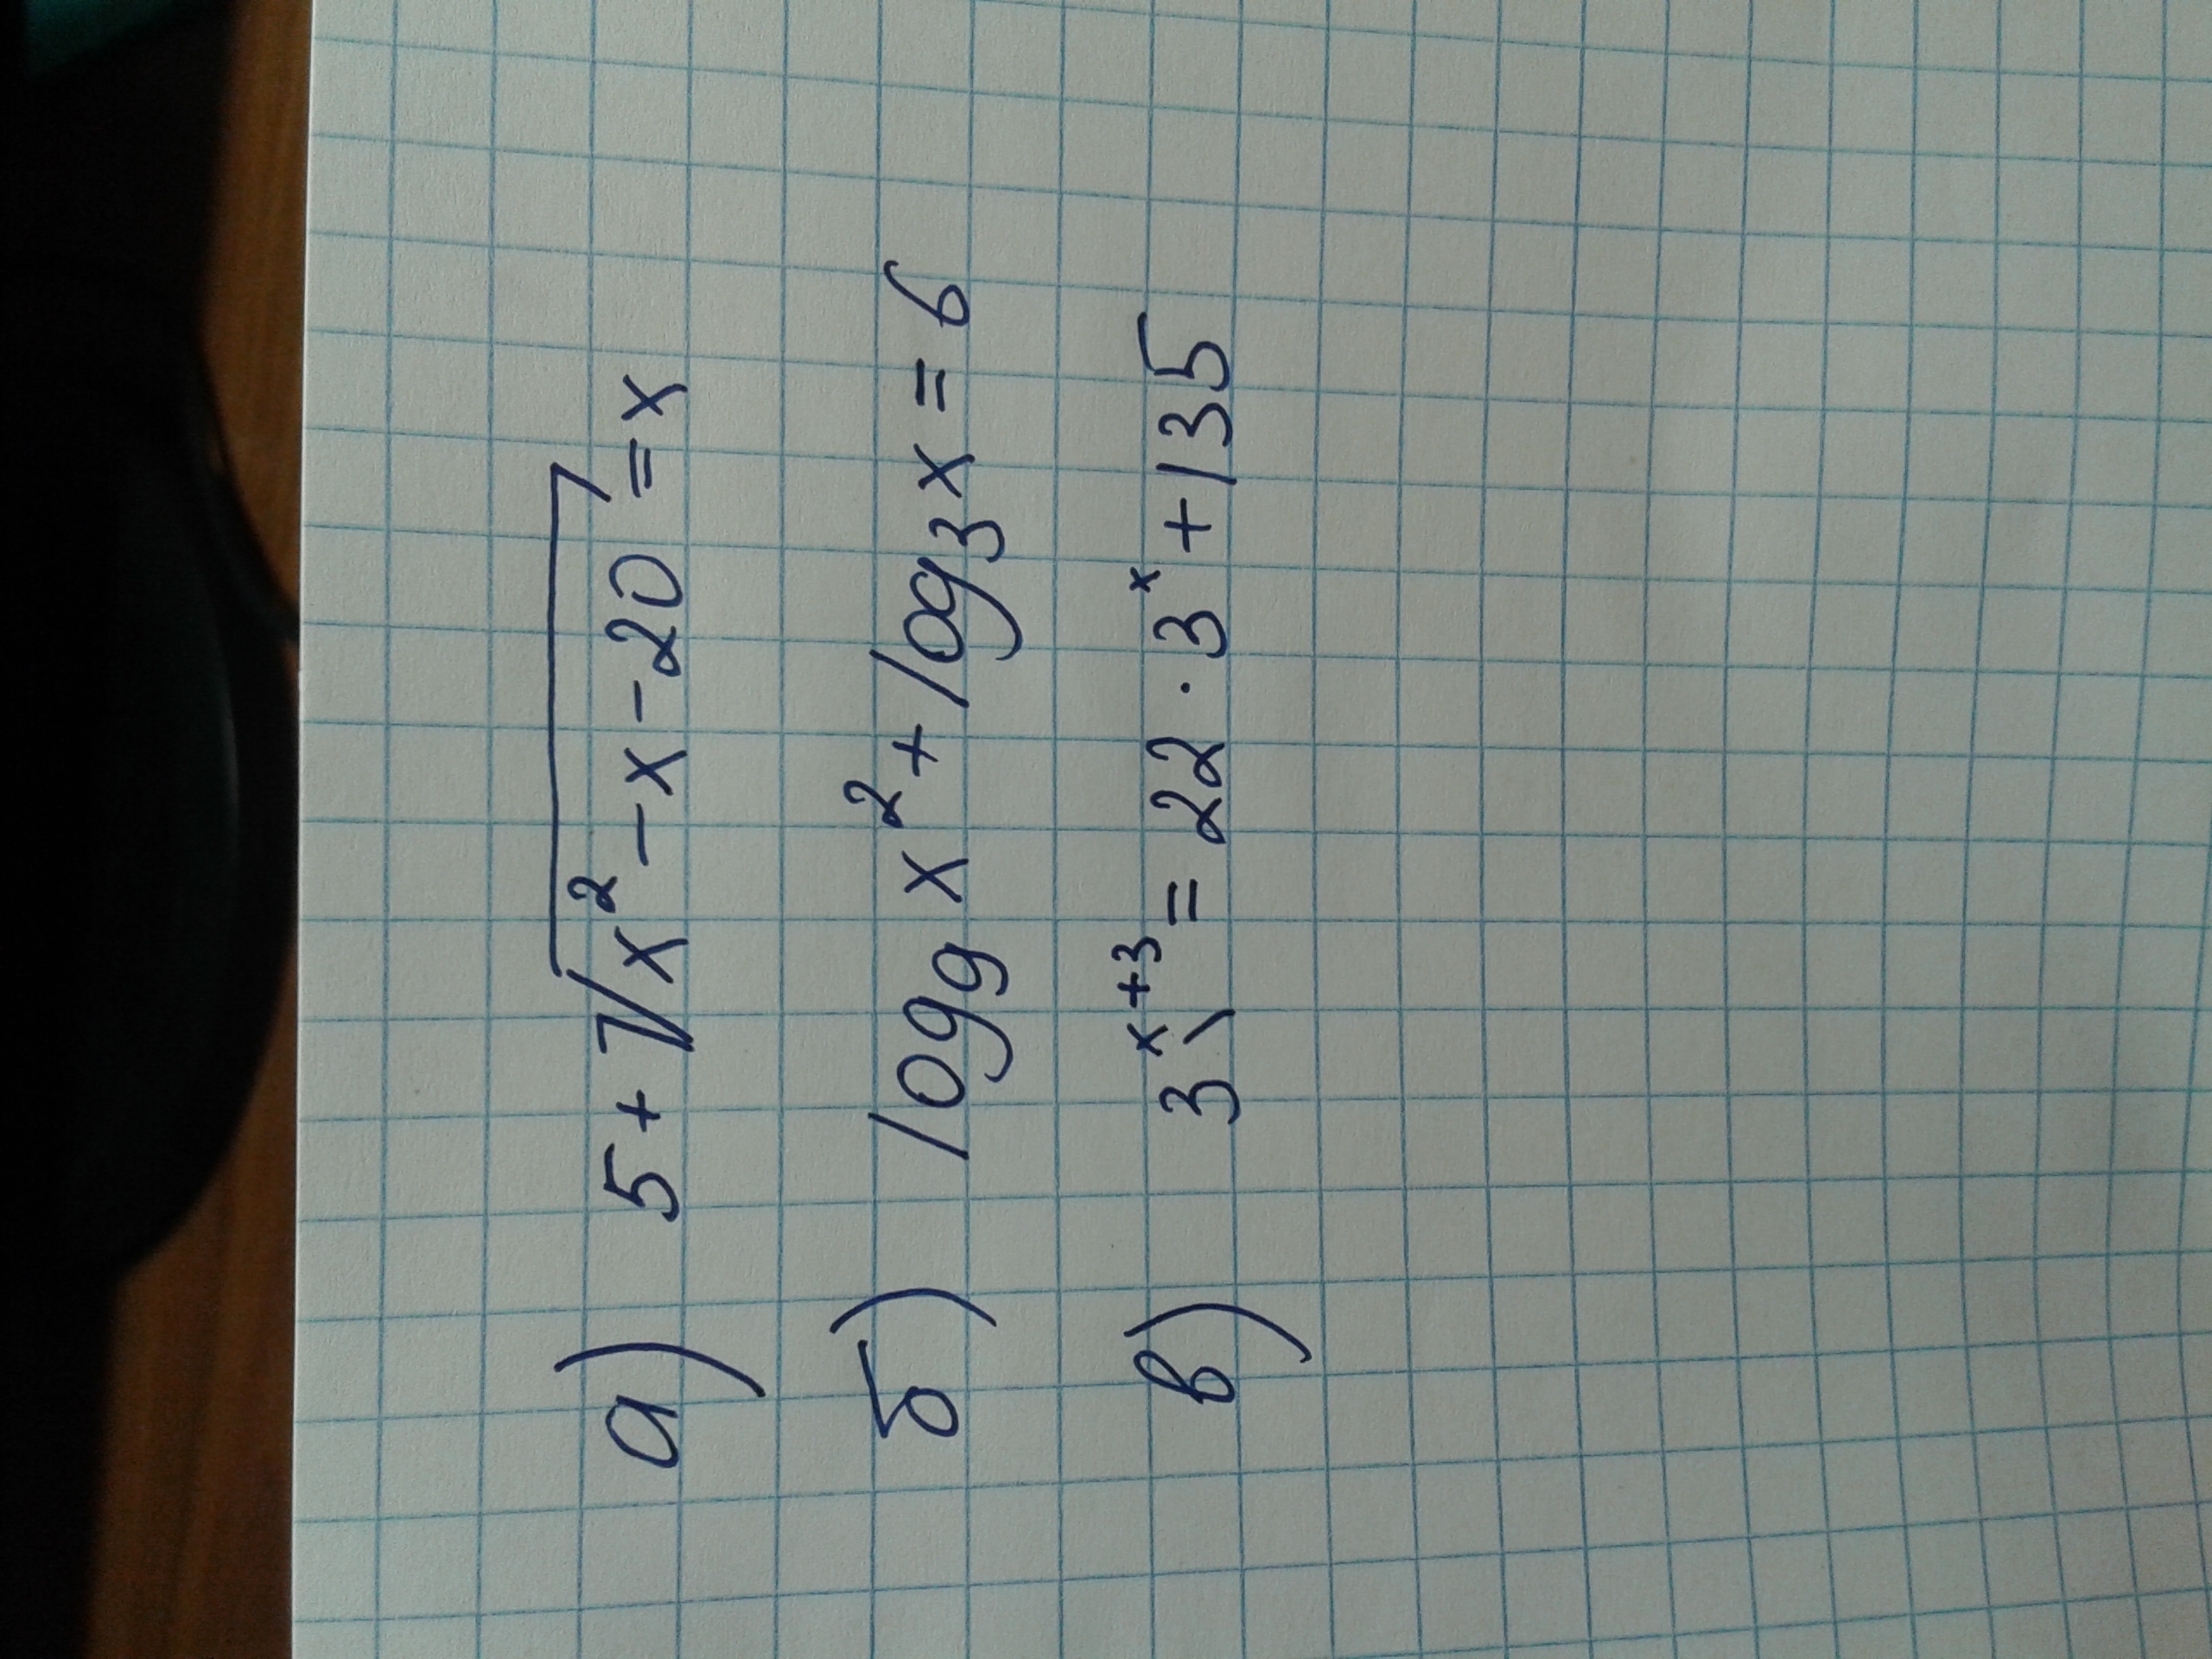 а) 5+√(x²-x-20)=x
б) log₉x²+log₃x=6
в) 3ˣ⁺³=22·3ˣ+135